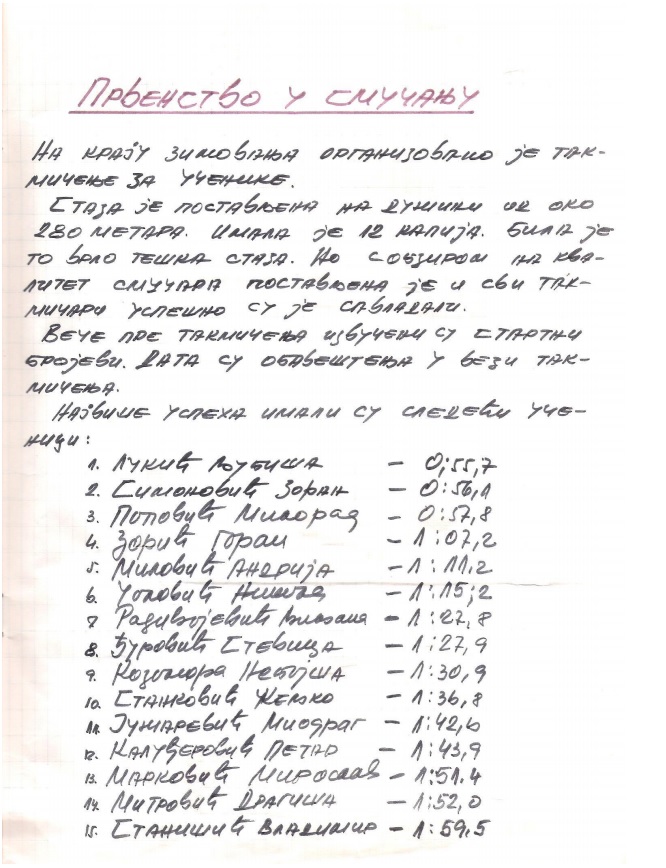 Првенство у смучању
На крају зимовања организовано је так-
мичење за ученике.
Стаза је постављена на дужини од око
280 метара. Имала је 12 капија. Била је
то врло тешка стаза. Но с обзиром на ква-
литет смучара постављена је и сви так-
мичари успешно су је савладали.
Вече пре такмичења извучени су стартни
бројеви. Дата су обавештења у вези так-
мичења.
Највише успеха имали су следећи уче-
ници:
1. Лукић Љубиша – 0:55,7
2. Симоновић Зоран – 0:56,1
3. Поповић Милорад – 0:57,8
4. Зорић Горан – 1:07,2
5. Миловић Андрија – 1:11.2
6. – 1:15,2
7. Радивојевић – 1:27,8
8. Ђуровић Стевица – 1:27,9
9. Козомора Небојша – 1:30,9
10. Станковић Жељко – 1:36,8
11. Миодраг – 1:42,6
12. Калуђеровић Петар – 1:43,9
13. Марковић Мирослав – 1:51.4
14. Митровић Драгиша – 1:52,0
15. Станишић Владимир – 1:59.5